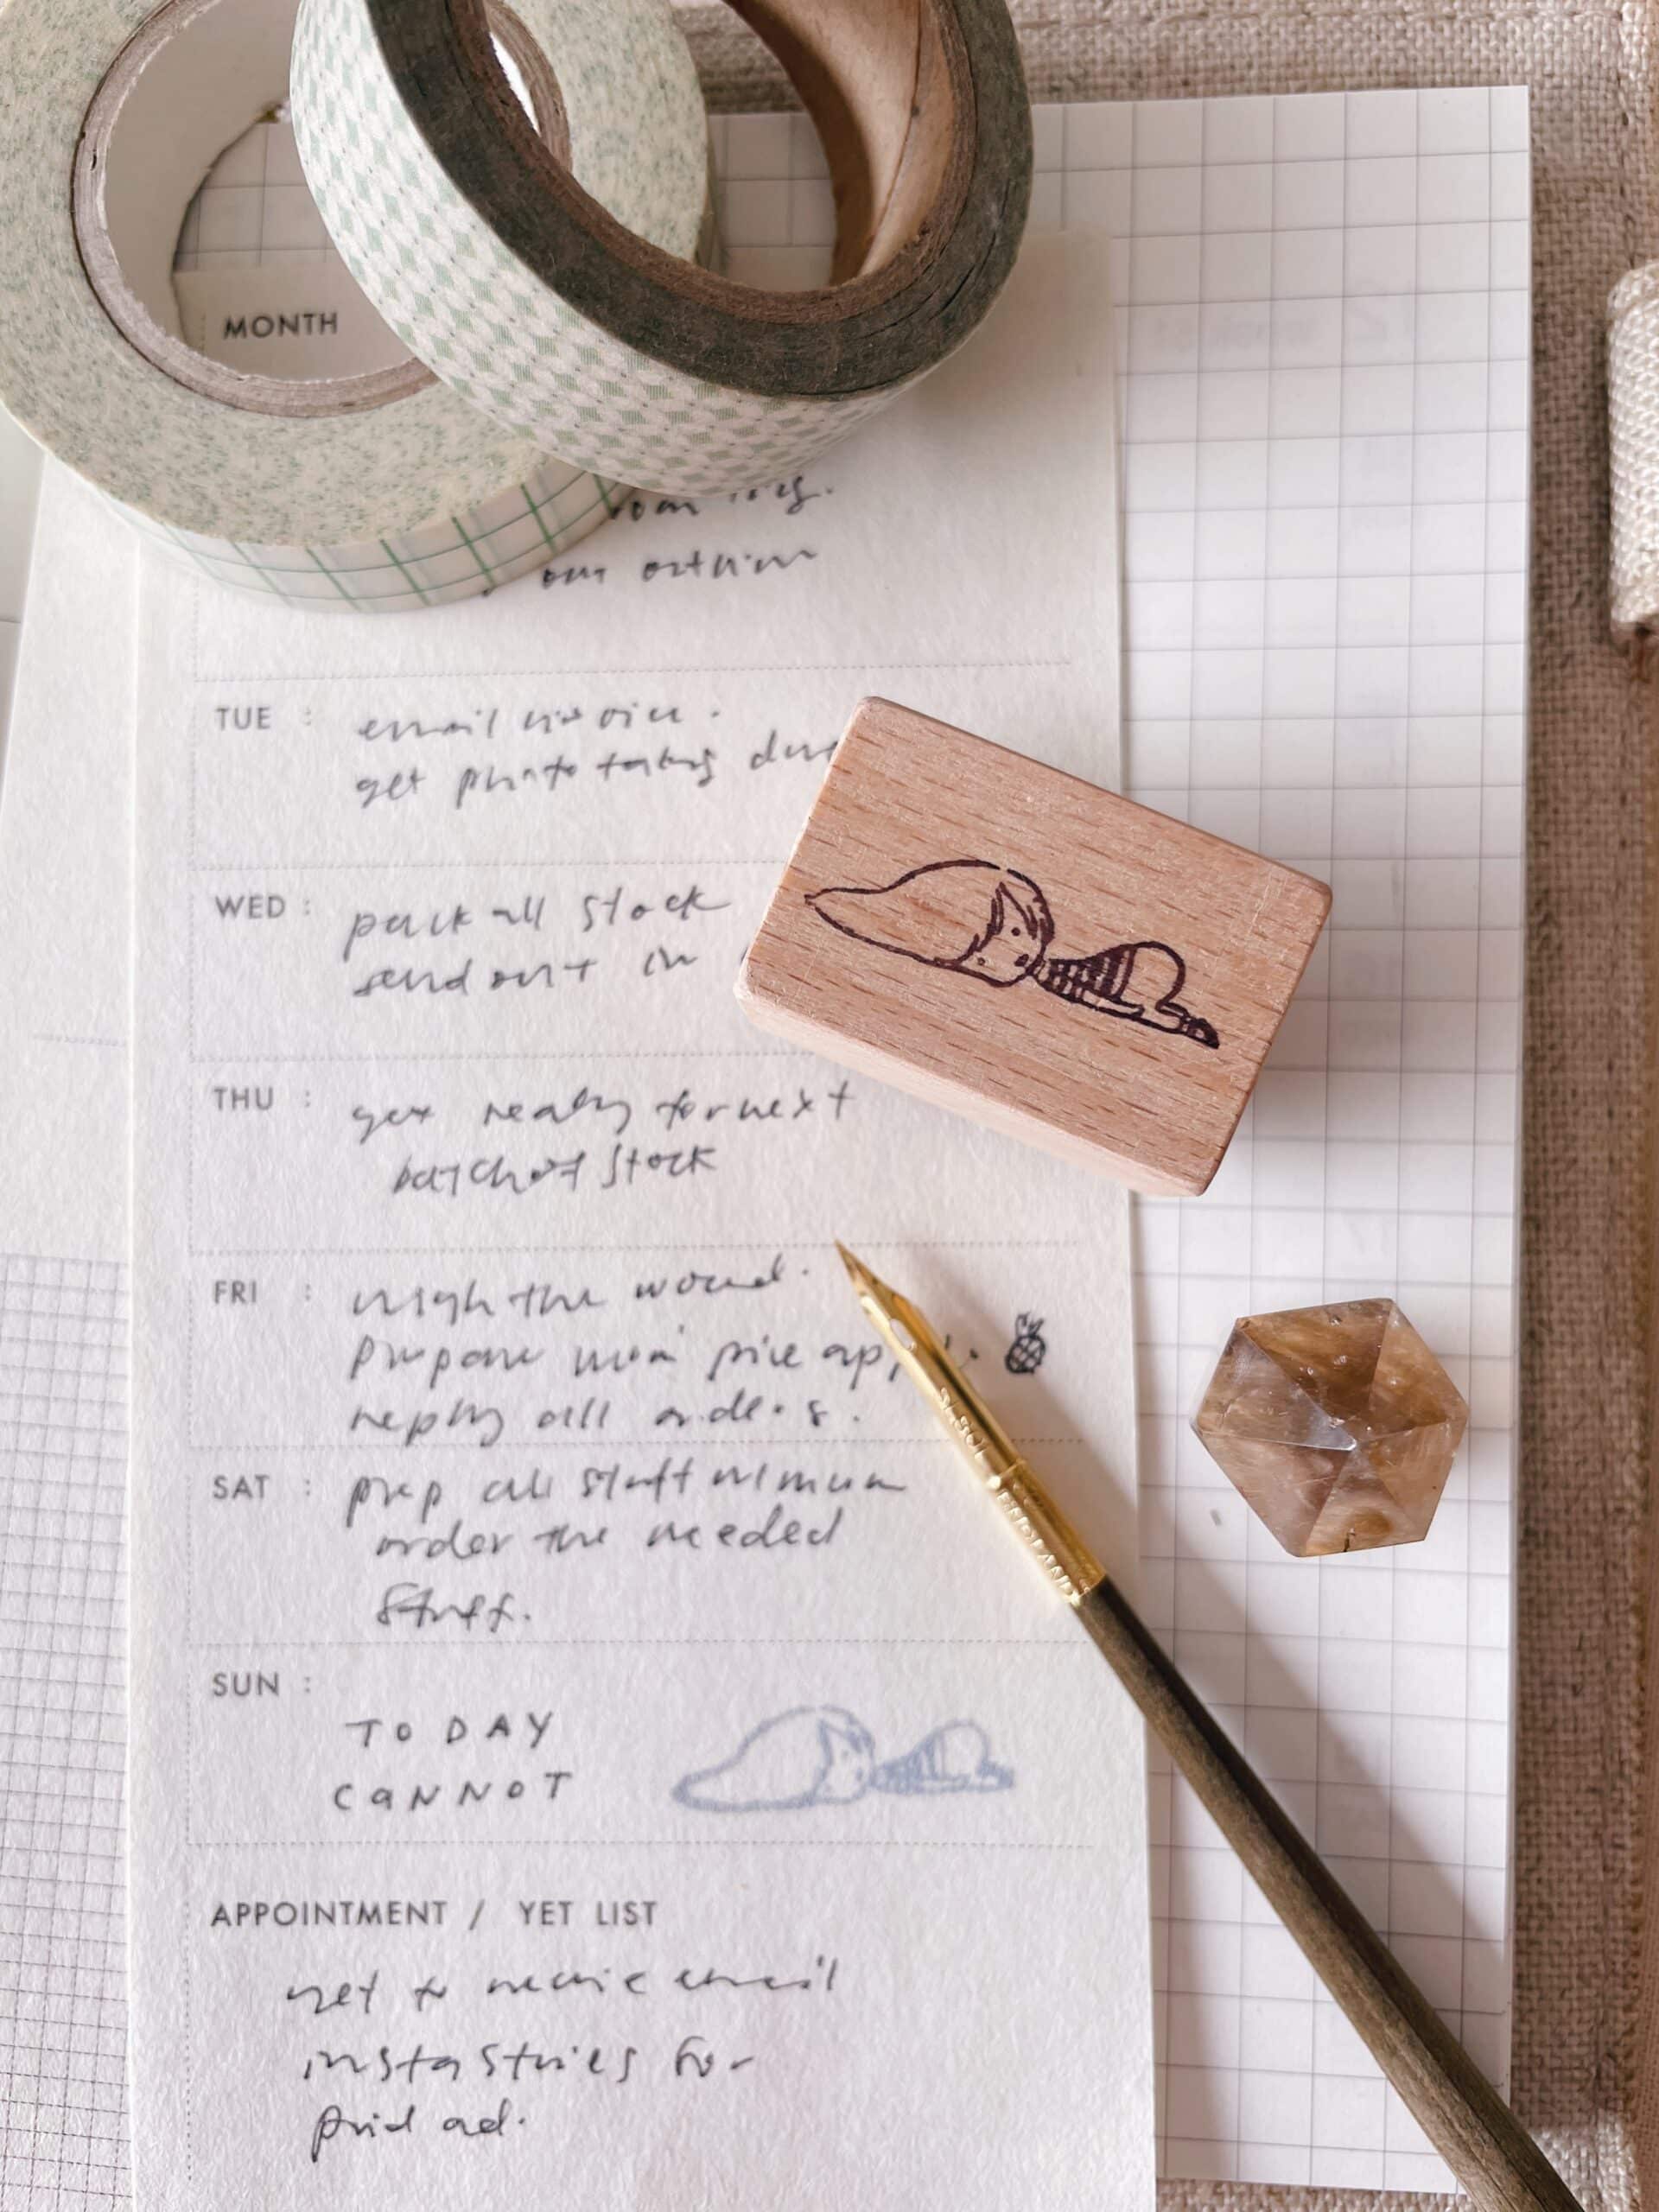 MONTH
TUE : email invoice.
get photo taking
WED : pack all stock
send out in
THU : get ready for next
batch of stock
FRI : the wood.
prepare pine
reply all orders.
SAT : prep all stuff
order the needed
stuff.
SUN :
TODAY
CaNNOT
APPOINTMENT / YET LIST
yet to receive email
insta stories for
paid ad.
ENGLAND